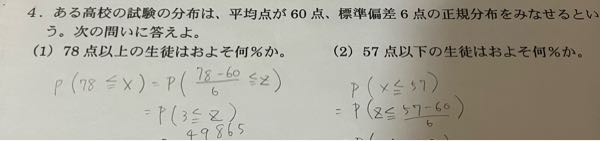 4. ある高校の試験の分布は、平均点が 60 点、標準偏差 6 点の正規分布をみなせるとい
う。次の問いに答えよ。
(1) 78 点以上の生徒はおよそ何%か。
P(78 ≦ X) = P(78-60/6 ≦ Z)
= P(3 ≦ Z)
49865
(2) 57 点以下の生徒はおよそ何%か。
P(X ≦ 57)
= P(Z ≦ 57-60/6)